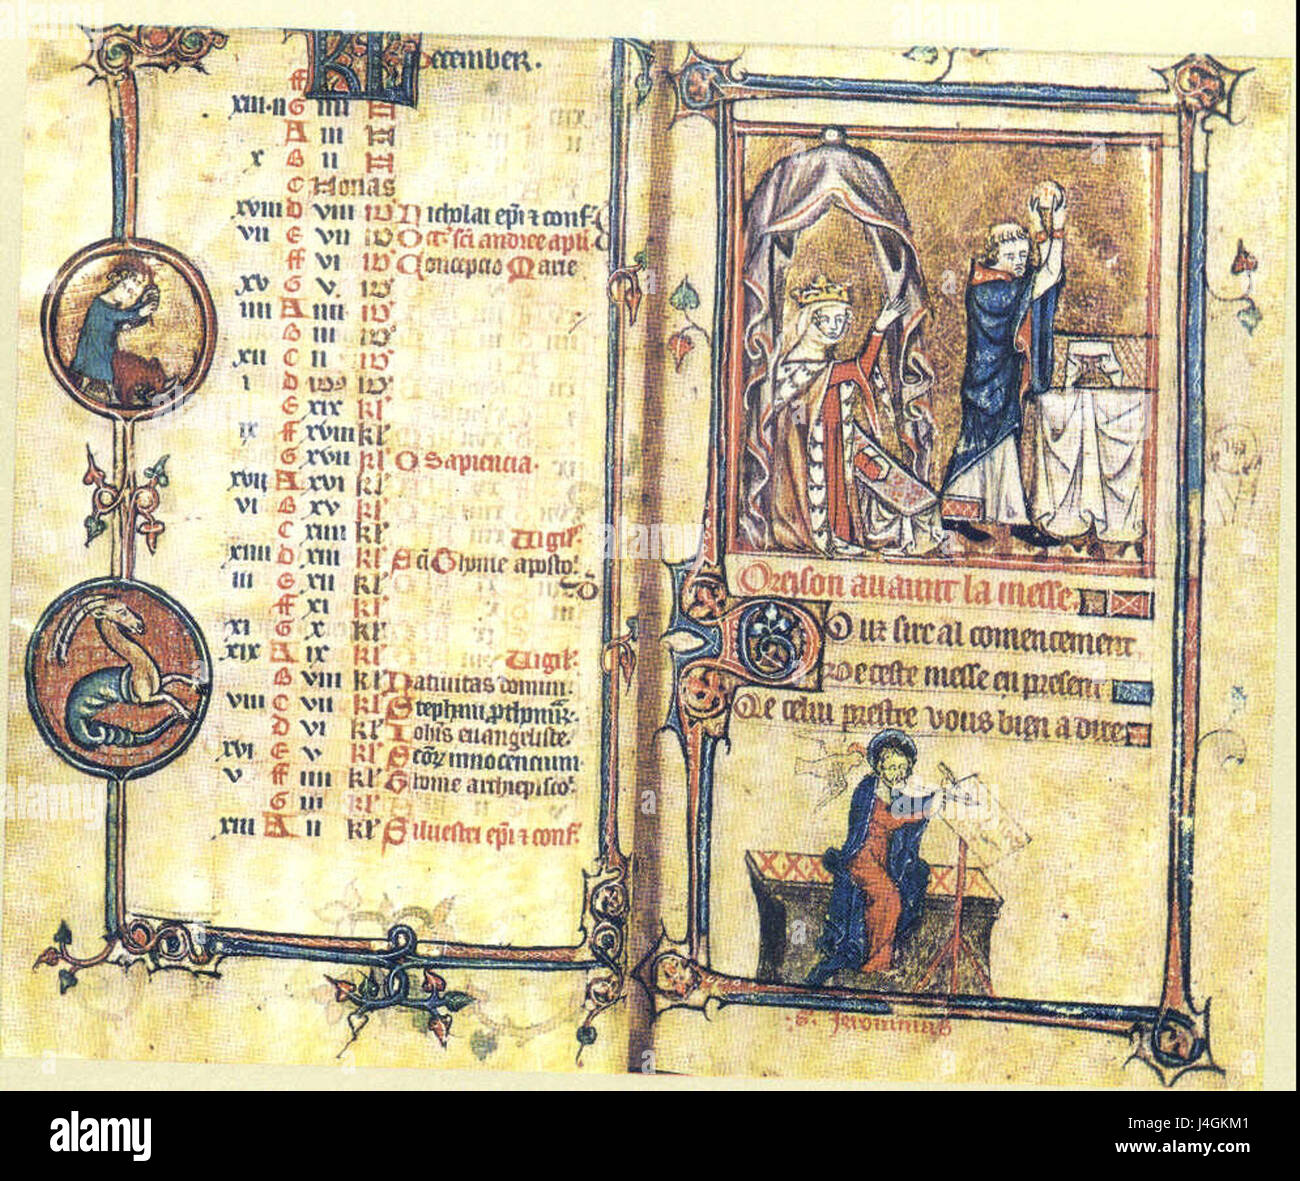 KL December.
ff
xiii·ii G iiii N
A iii N
x B ii N
C Nonas
xviii D viii id Nicholai epi ⁊ conf.
vii E vii id Oct. sci andree apli
ff vi id Concepcio Marie
xv G v id
iiii A iiii id
B iii id
xii C ii id
i D id id
E xix kl
ix ff xviii kl
G xvii kl O Sapiencia.
xvii A xvi kl
vi B xv kl
C xiiii kl Vigil.
xiiii D xiii kl Sci Thome aposto.
iii E xii kl
ff xi kl
xi G x kl
xix A ix kl Vigil.
B viii kl Nativitas domini.
viii C vii kl Stephani prothomr.
D vi kl Iohis euangeliste.
xvi E v kl Scorum innocencium.
v ff iiii kl Thome archiepisco.
G iii kl
xiii A ii kl Siluestri epi ⁊ conf.
Oreison auaunt la messe.
Pour sire al comencement
De ceste messe en present
Qe celui prestre vous bien a dire
S. Jeronimus
alamy
J4GKM1
www.alamy.com